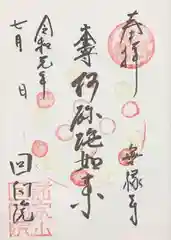 奉拝
無縁寺
本尊阿弥陀如来
回向院
令和元年
七月　日